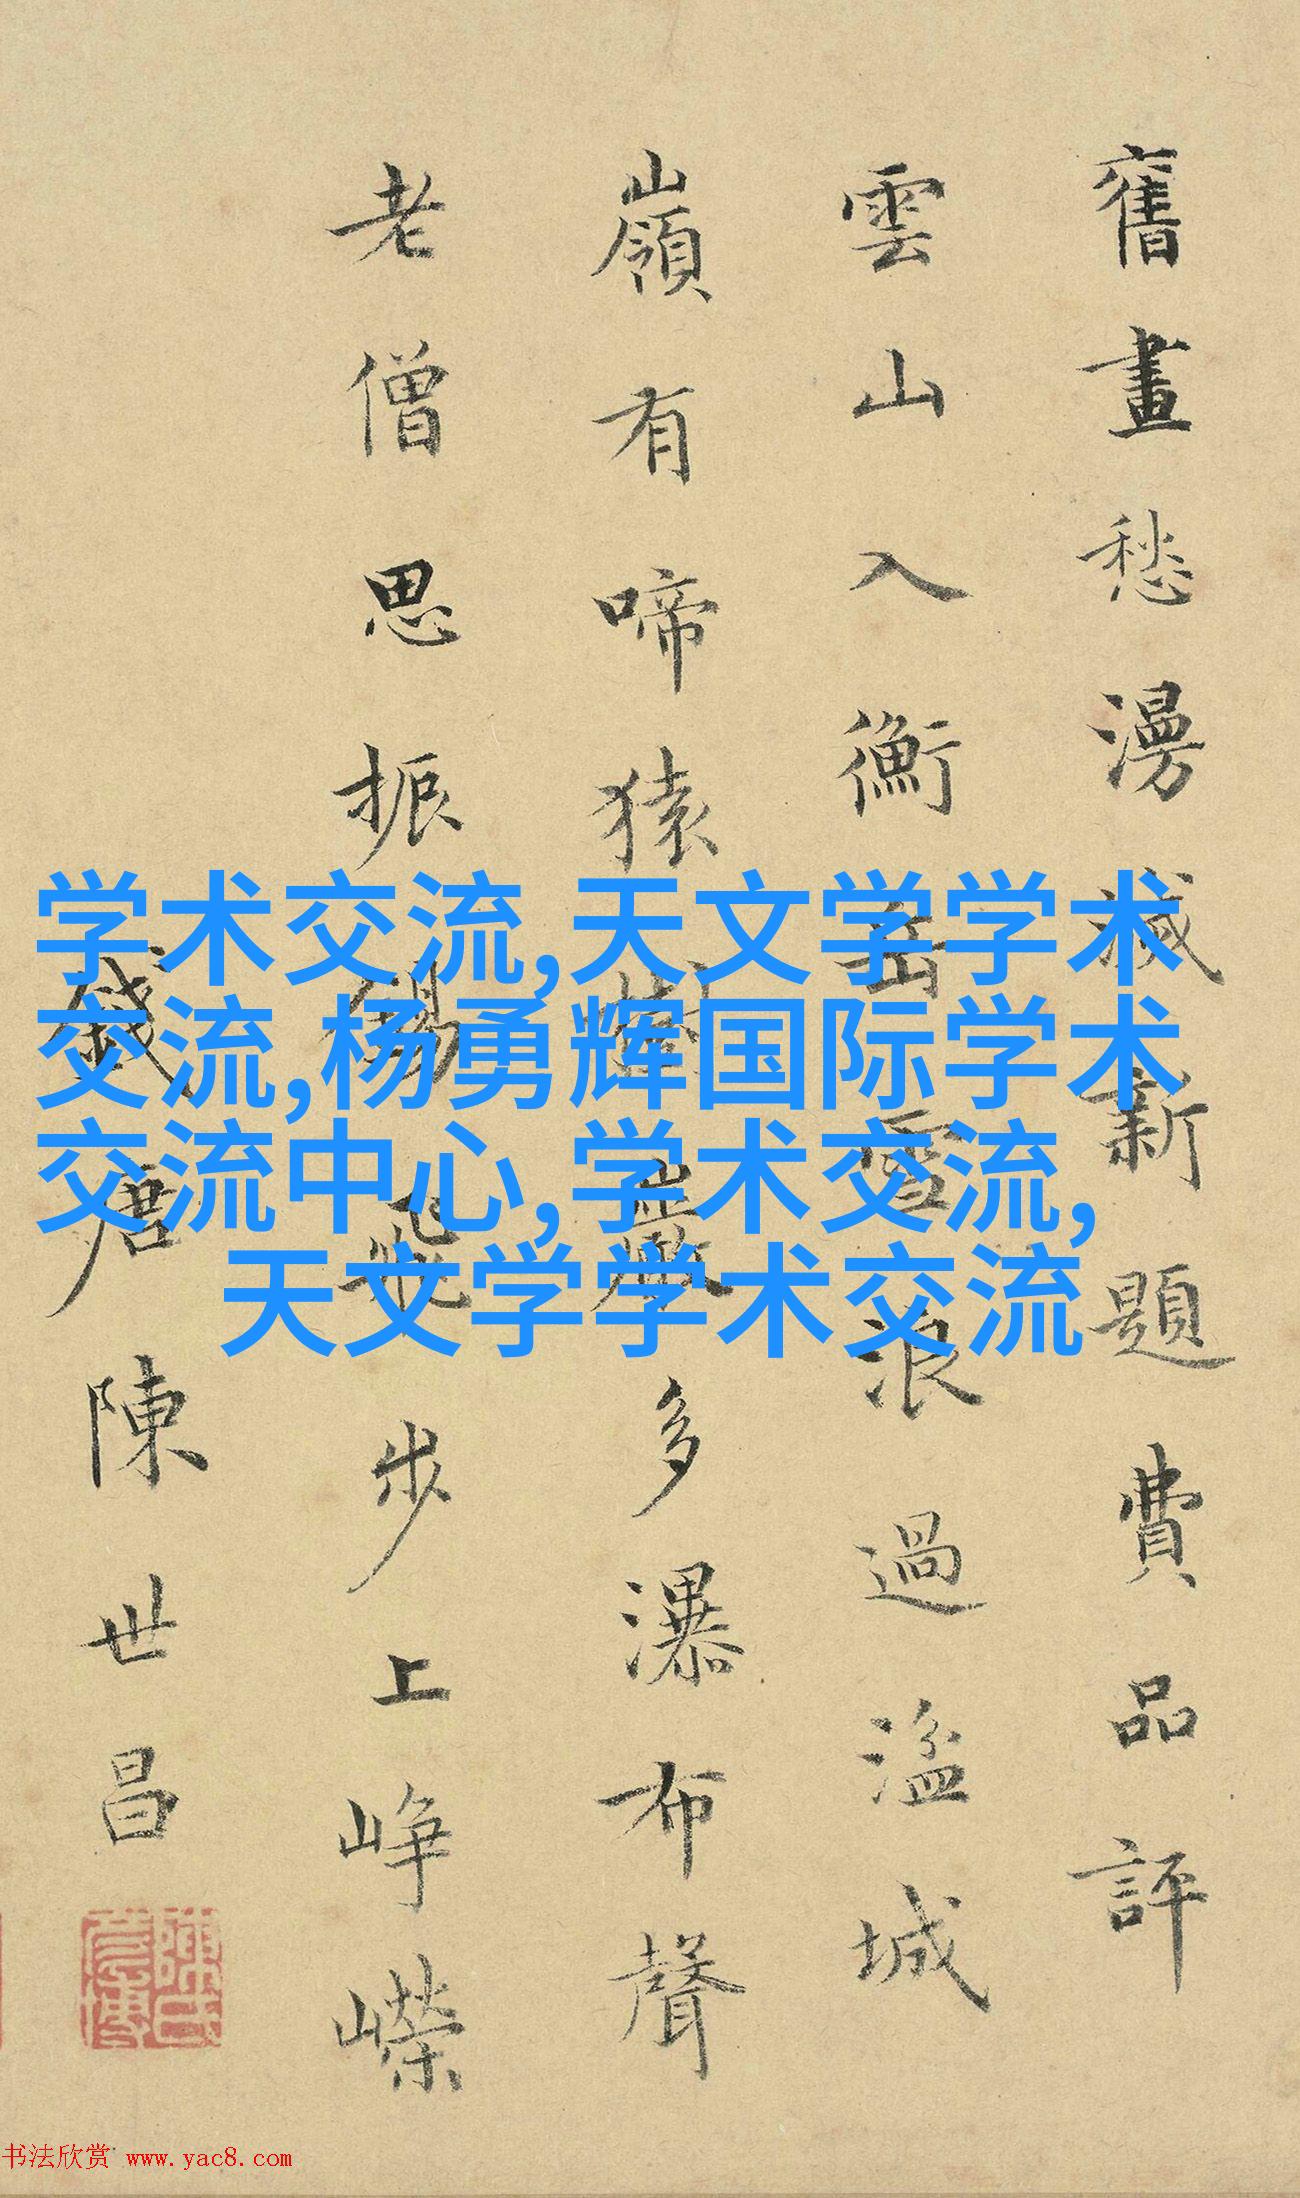 舊畫愁漫滅新題費品評
雲山入衡岳雪浪過湓城
嶺有啼猿樹巖多瀑布聲
老僧思振錫飛步上崢嶸
錢唐陳世昌
学术交流,天文学学术
交流,杨勇辉国际学术
交流中心,学术交流,
天文学学术交流
书法欣赏 www.yac8.com